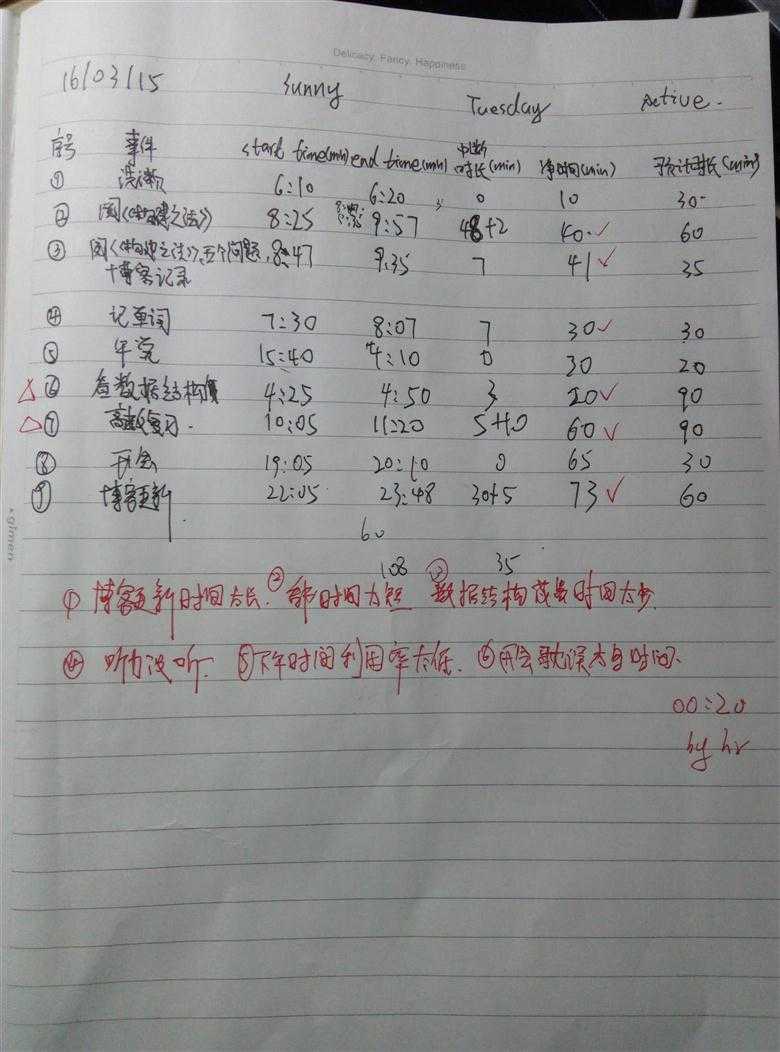 Delicacy, Fancy, Happiness
16/03/15 Sunny Tuesday Active.
序号 事件 start time(mh) end time(mh) 中断时长(min) 净时间(min) 预计时长(min)
① 洗漱 6:10 6:20 0 10 30
② 阅《构建之法》 8:25 9:57 48+2 40 ✓ 60
③ 阅《构建之法》,五个问题, 8:47 9:35 7 41 ✓ 35
+博客记录
④ 记单词 7:30 8:07 7 30 ✓ 30
⑤ 午觉 15:40 4:10 0 30 20
△ ⑥ 看数据结构 4:25 4:50 3 20 ✓ 90
△ ⑦ 高数复习. 10:05 11:20 5+10 60 ✓ 90
⑧ 开会 19:05 20:10 0 65 30
⑨ 博客更新 22:05 23:48 30+5 73 ✓ 60
60
108 35
① 博客更新时间太长. ② 时间太短 ③ 数据结构 时间太少.
④ 听力没听. ⑤下午时间利用率太低. ⑥开会耽误太多时间.
00:20
by hr
gimen